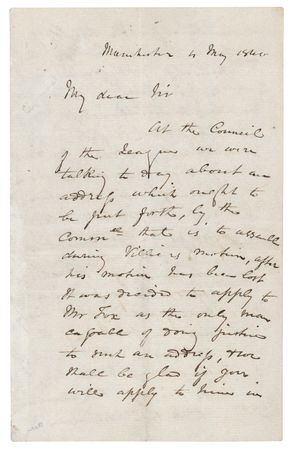 Manchester 4 May 1840
My dear Sir
At the Council
of the League we were
talking to day about an
address which ought to
be put forth, by the
Commee that is to assemble
during Villiers motion, after
his motion has been lost
It was decided to apply to
Mr Fox as the only man
capable of doing justice
to such an address, & we
shall be glad if you
will apply to him in